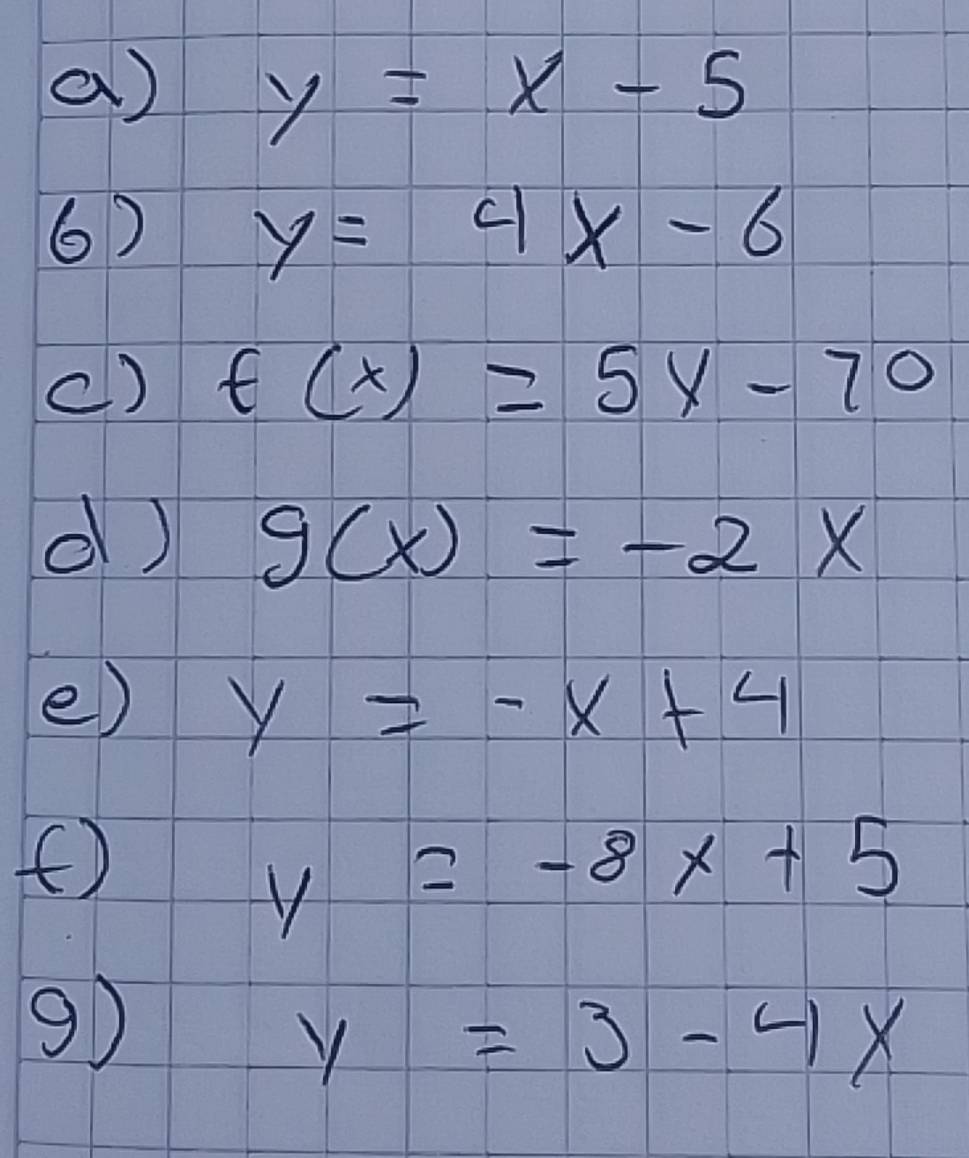 a) y = x - 5
b) y = 4x - 6
c) f(x) = 5x - 70
d) g(x) = -2x
e) y = -x + 4
f) y = -8x + 5
g) y = 3 - 4x